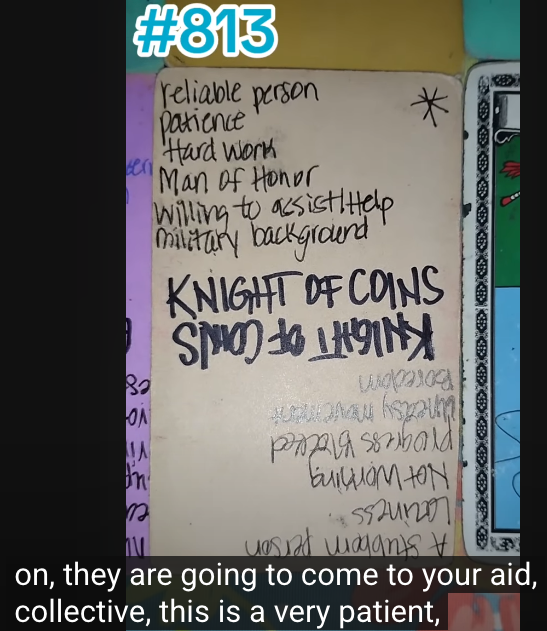 #813
reliable person
patience
Hard work
Man of Honor
Willing to assist/Help
military background
KNIGHT OF COINS
KNIGHT OF COINS
Boredom
Uneasy movement
progress blocked
Not Working
Laziness
A stubborn person
on, they are going to come to your aid,
collective, this is a very patient,